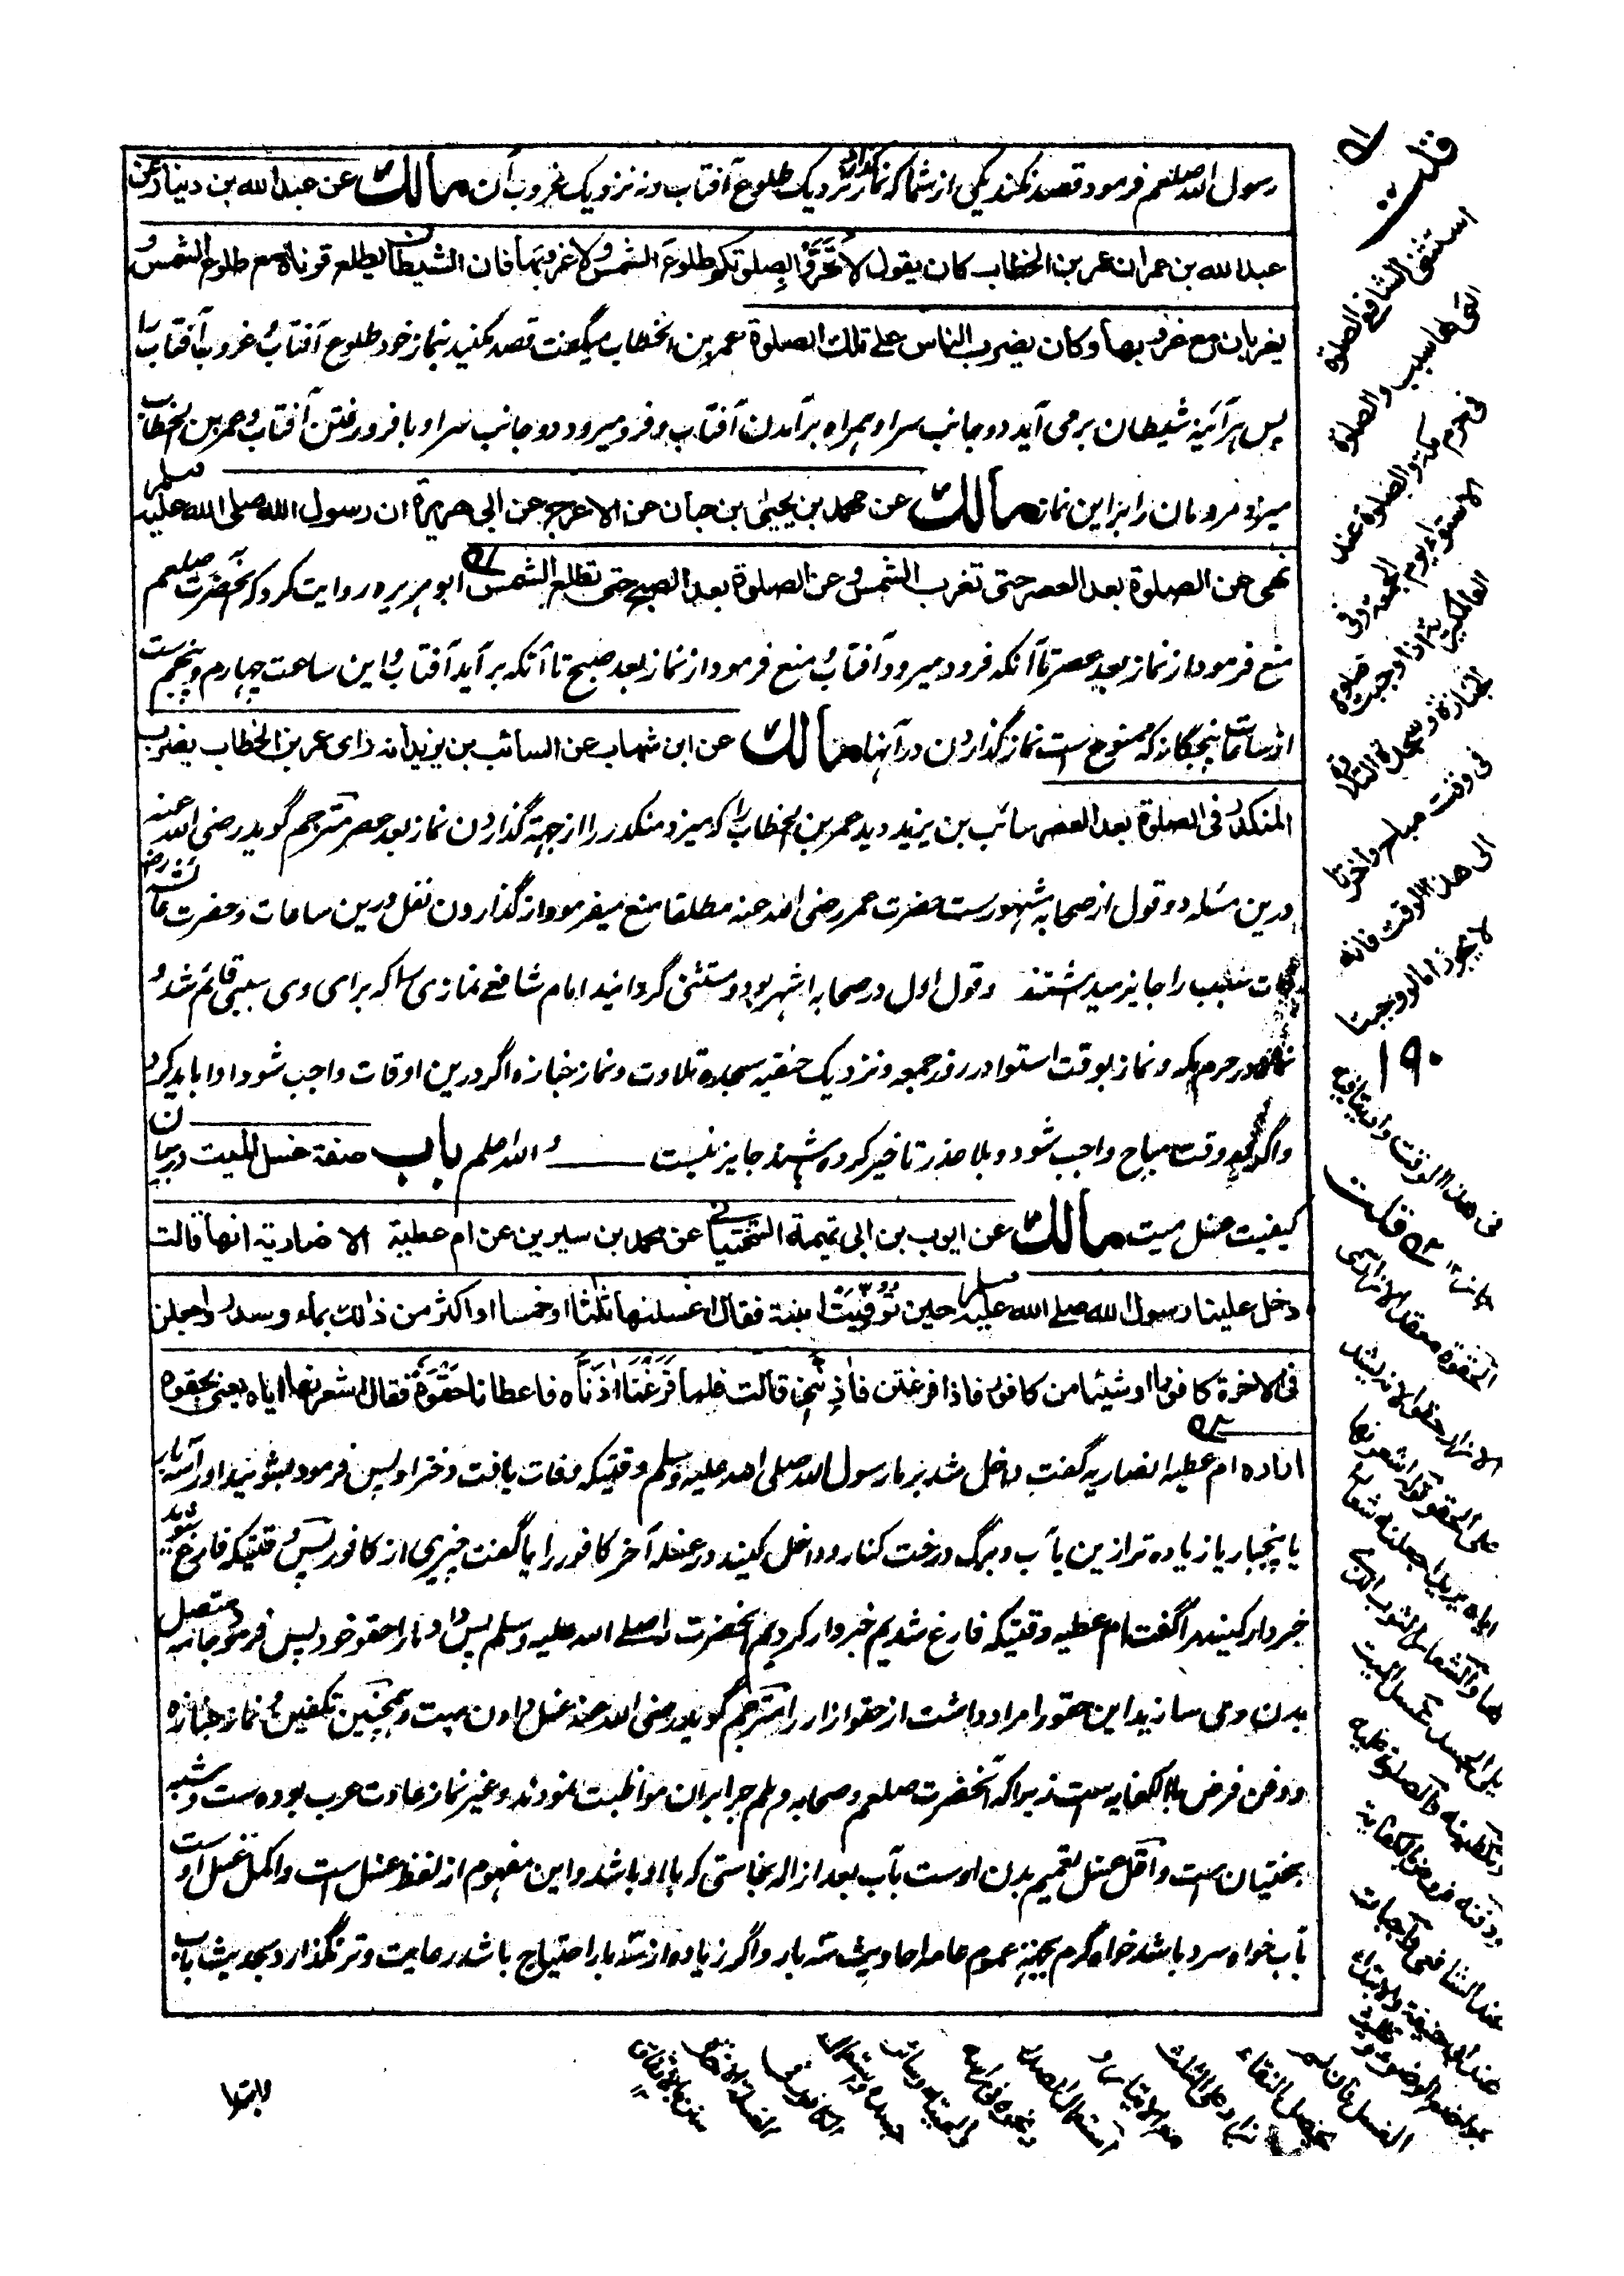 رسول الله صلعم فرمود قصد نکند یکی از شما که نماز گذارد نزدیک طلوع آفتاب و نه نزدیک غروب آن مالك عن عبد الله بن دینار عن
عبد الله بن عمر ان عمر بن الخطاب کان یقول لا تحروا بصلوتکم طلوع الشمس ولا غروبها فان الشیطان یطلع قرناه مع طلوع الشمس و
یغربان مع غروبها وکان یضرب الناس علی تلك الصلوة عمر بن الخطاب میگفت قصد مکنید بنماز خود طلوع آفتاب و غروب آفتاب را
پس هر آئینه شیطان برمی آید دو جانب سر او همراه برآمدن آفتاب و فرو میرود دو جانب سر او با فرو رفتن آفتاب و عمر بن الخطاب
میزد مردمان را بر این نماز مالك عن محمد بن یحیی بن حبان عن الاعرج عن ابی هریرة ان رسول الله صلی الله علیه وسلم
نهی عن الصلوة بعد العصر حتی تغرب الشمس و عن الصلوة بعد الصبح حتی تطلع الشمس ابو هریره روایت کرد که آنحضرت صلعم
منع فرمود از نماز بعد عصر تا آنکه فرود میرود آفتاب و منع فرمود از نماز بعد صبح تا آنکه برآید آفتاب و این ساعت چهارم و پنجم ست
از ساعات پنجگانه که ممنوع ست نماز گذاردن در آنها مالك عن ابن شهاب عن السائب بن یزید انه رای عمر بن الخطاب یضرب
المنکدر فی الصلوة بعد العصر سائب بن یزید دید عمر بن الخطاب را که میزد منکدر را از جهة گذاردن نماز بعد عصر مترجم گوید رضی الله عنه
درین مسئله دو قول از صحابه مشهورست حضرت عمر رضی الله عنه مطلقا منع میفرمود از گذاردن نفل درین ساعات و حضرت عائشه رض
ذات سبب را جایز میداشتند وقول اول در صحابه اشهر بود و مستثنی گردانید امام شافعی نمازی را که برای وی سببی قائم شد و
نماز در حرم مکه و نماز بوقت استوا در روز جمعه و نزدیک حنفیه سجده تلاوت و نماز جنازه اگر درین اوقات واجب شود ادا باید کرد
واگر در وقت مباح واجب شود و بلا عذر تاخیر کرده شد جایز نیست والله اعلم باب صفة غسل المیت در بیان
کیفیت غسل میت مالك عن ایوب بن ابی تمیمة السختیانی عن محمد بن سیرین عن ام عطیة الانصاریة انها قالت
دخل علینا رسول الله صلی الله علیه وسلم حین توفیت ابنته فقال اغسلنها ثلثا او خمسا او اکثر من ذالك بماء وسدر واجعلن
فی الاخرة کافورا او شیئا من کافور فاذا فرغتن فاذننی قالت فلما فرغنا اذناه فاعطانا حقوه فقال اشعرنها ایاه یعنی بحقوه
ازاره ام عطیه انصاریه گفت داخل شد بر ما رسول الله صلی الله علیه وسلم وقتیکه وفات یافت دختر او پس فرمود بشوئید او را سه بار
یا پنجبار یا زیاده تر ازین بآب و برگ درخت کنار و داخل کنید در غسله آخر کافور را یا گفت چیزی از کافور پس وقتیکه فارغ شوید
خبردار کنید مرا گفت ام عطیه وقتیکه فارغ شدیم خبردار کردیم آنحضرت را صلی الله علیه وسلم پس داد ما را حقو خود پس فرمود جامه متصل
بدن وی سازید این حقو را مراد داشت از حقو ازار را مترجم گوید رضی الله عنه غسل دادن میت و همچنین تکفین و نماز جنازه
و دفن فرض بالکفایه ست زیرا که آنحضرت صلعم و صحابه و هلم جرا بران مواظبت نمودند و غیر نماز عادت عرب بوده ست و شبه
بختیان ست و اقل غسل تعمیم بدن اوست بآب بعد ازاله نجاستی که با او باشد و این مفهوم از لفظ غسل ست و اکمل غسل اوست
بآب خواه سرد باشد خواه گرم بجهة عموم احادیث سه بار و اگر زیاده از سه بار احتیاج باشد رعایت وتر نگذارد بحدیث باب
قلت
استثنی الشافعی الصلوة
التی لها سبب والصلوة
فی حرم مکة والصلوة عند
الاستواء یوم الجمعة وفی
العالمگیریة اذا وجبت صلوة
الجنازة وسجدة التلاوة
فی وقت مباح واخرتا
الی هذا الوقت فانه
لا یجوز اما لو وجبتا
۱۹۰
فی هذا الوقت وادیتا فیه
جازت ۱۲ قلت
الحقوة معقد الازار سمی
علی الحقو قوله اشعرنها
ایاه یرید اجعلنه شعارا
لها والشعار الثوب الذی
یلی الجسد غسل المیت
وتکفینه والصلوة علیه
ودفنه فروض بالکفایة
عند الشافعی